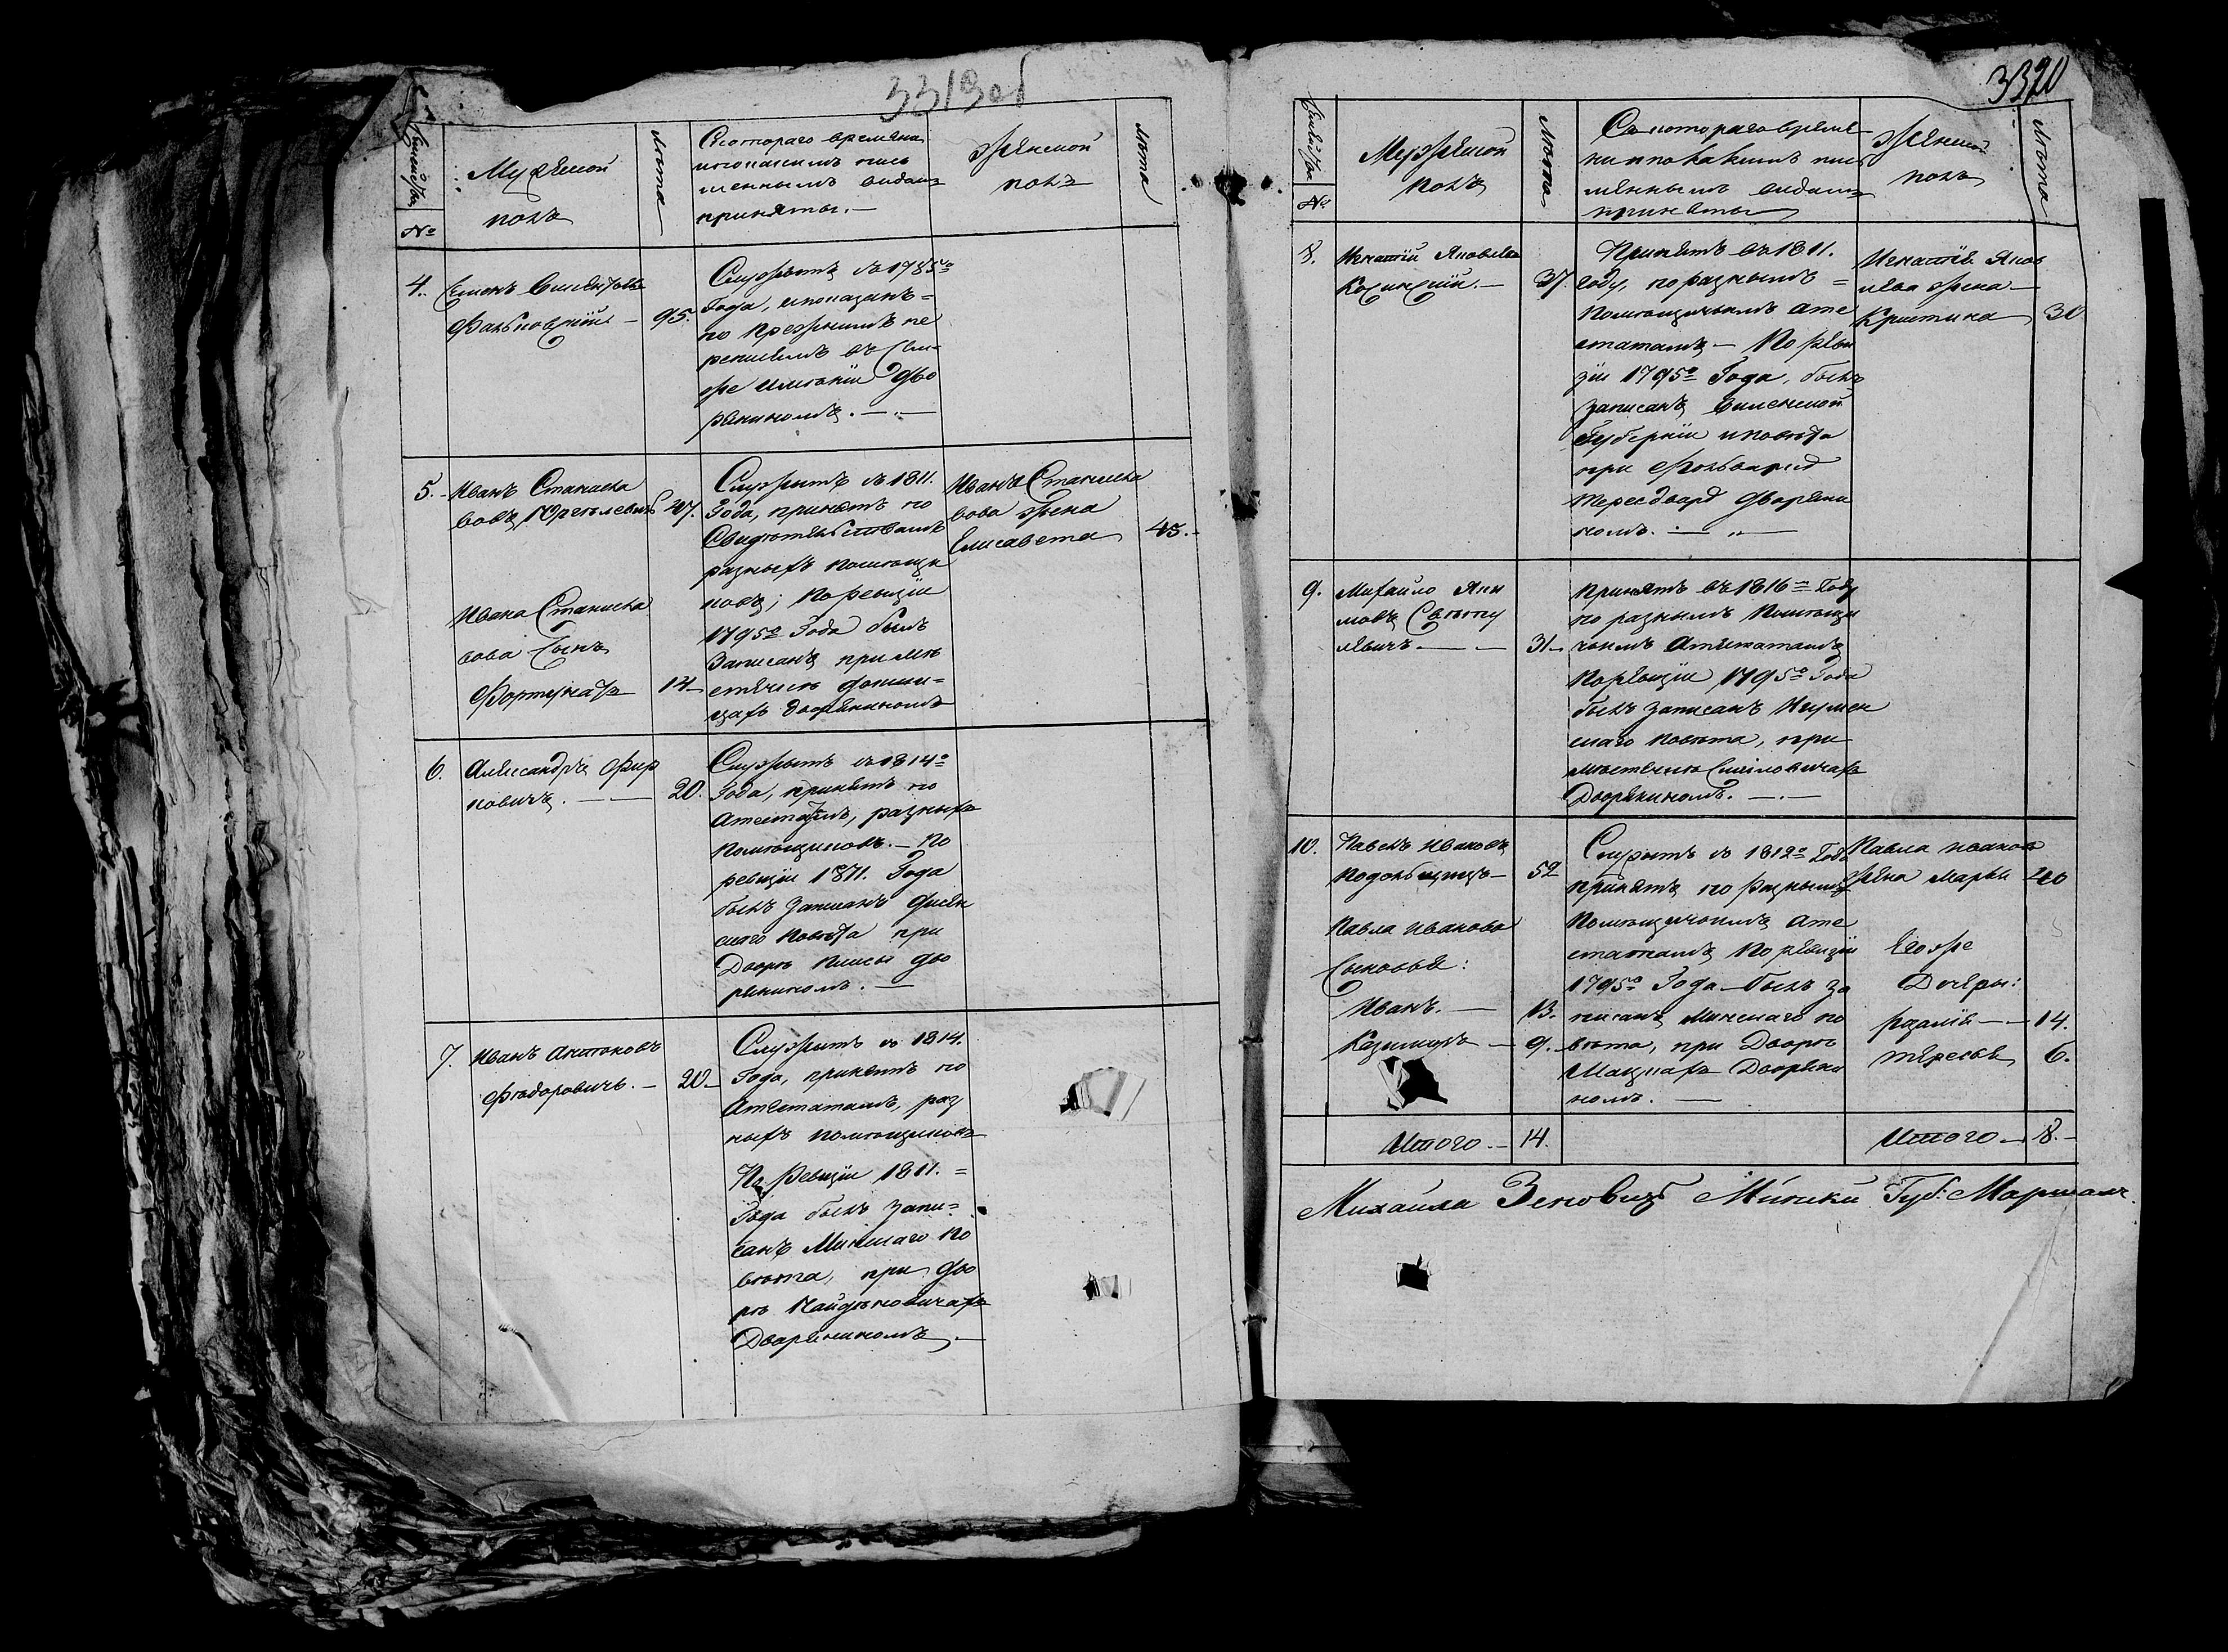 3319об
Семейства
№
Мужеской
полъ
Лѣта
Скотораго времяна
ипокакимъ пись
меннымъ видамъ
приняты. —
Женской
полъ
Лѣта
4.
Семенъ
Фальковскій —
95.
Служитъ съ 1785го
Года, ипоказанъ =
по прежнимъ пе
реписямъ въ Сем
же имѣніи дво
ряниномъ. —
5.
Иванъ Станисла
вовъ
47.
Служитъ съ 1811.
Года, принятъ по
Свидѣтельствамъ
разныхъ помѣщи
ковъ; По ревизіи
1795го Года былъ
Записанъ при мѣ
стечкѣ
дворяниномъ
Ивана Станисла
вова жена
Елисавета
45. -
Ивана Станисла
вова Сынъ
Фортунатъ
14 —
6.
Александръ
новичъ. — —
20.
Служитъ съ 1814го
Года, принятъ по
Атестатамъ, разныхъ
помѣщиковъ. — По
ревизіи 1811. Года
былъ записанъ дисен
скаго повѣта при
Дворѣ Плисы дво
ряниномъ. —
7.
Иванъ Антоновъ
Фіодоровичъ. —
20 —
Служитъ съ 1814.
Года, принятъ по
Атестатамъ, раз
ныхъ помѣщиковъ
По Ревизіи 1811. =
Года былъ запи =
санъ Минскаго По
вѣта, при дво
рѣ
Дворяниномъ. —
3320
Семейства
№
Мужеской
полъ
Лѣта
Скотораго време
ни ипокакимъ пись
меннымъ видамъ
приняты
Женской
полъ
Лѣта
8.
Игнатій Яковлевъ
37.
Принятъ въ 1811.
году, по разнымъ =
помѣщичьимъ ате
статамъ — По реви
зіи 1795го Года, былъ
записанъ Виленской
Губерніи и повѣта
при Фольваркѣ
дворяни
номъ. —
Игнатія Яков
лева жена —
Кристина
30
9.
Михайло Яки
мовъ
левичъ — —
31 —
принятъ въ 1816м Году
по разнымъ Помѣщи
чьимъ Атестатамъ
По ревизіи 1795го Года
былъ записанъ Игумен
скаго повѣта, при
мѣстечкѣ Смиловичахъ
Дворяниномъ. —
10.
Павелъ Ивановъ
52
Служитъ съ 1812го Года
принятъ по разнымъ
Помѣщичьимъ Ате
статамъ По ревизіи
1795го Года — былъ за
писанъ Минскаго по
вѣта, при Дворѣ
Дворяни
номъ. —
Павла Иванова
жена Марья
40
Павла Иванова
Сыновья:
Иванъ. —
13.
Казимиръ —
9.
Егоже
Дочеры:
Розалія — —
14.
Тересса
6.
Итого. —
14.
Итого —
8. -
Михайла Зеновичъ Минскій Губ: Маршалъ.